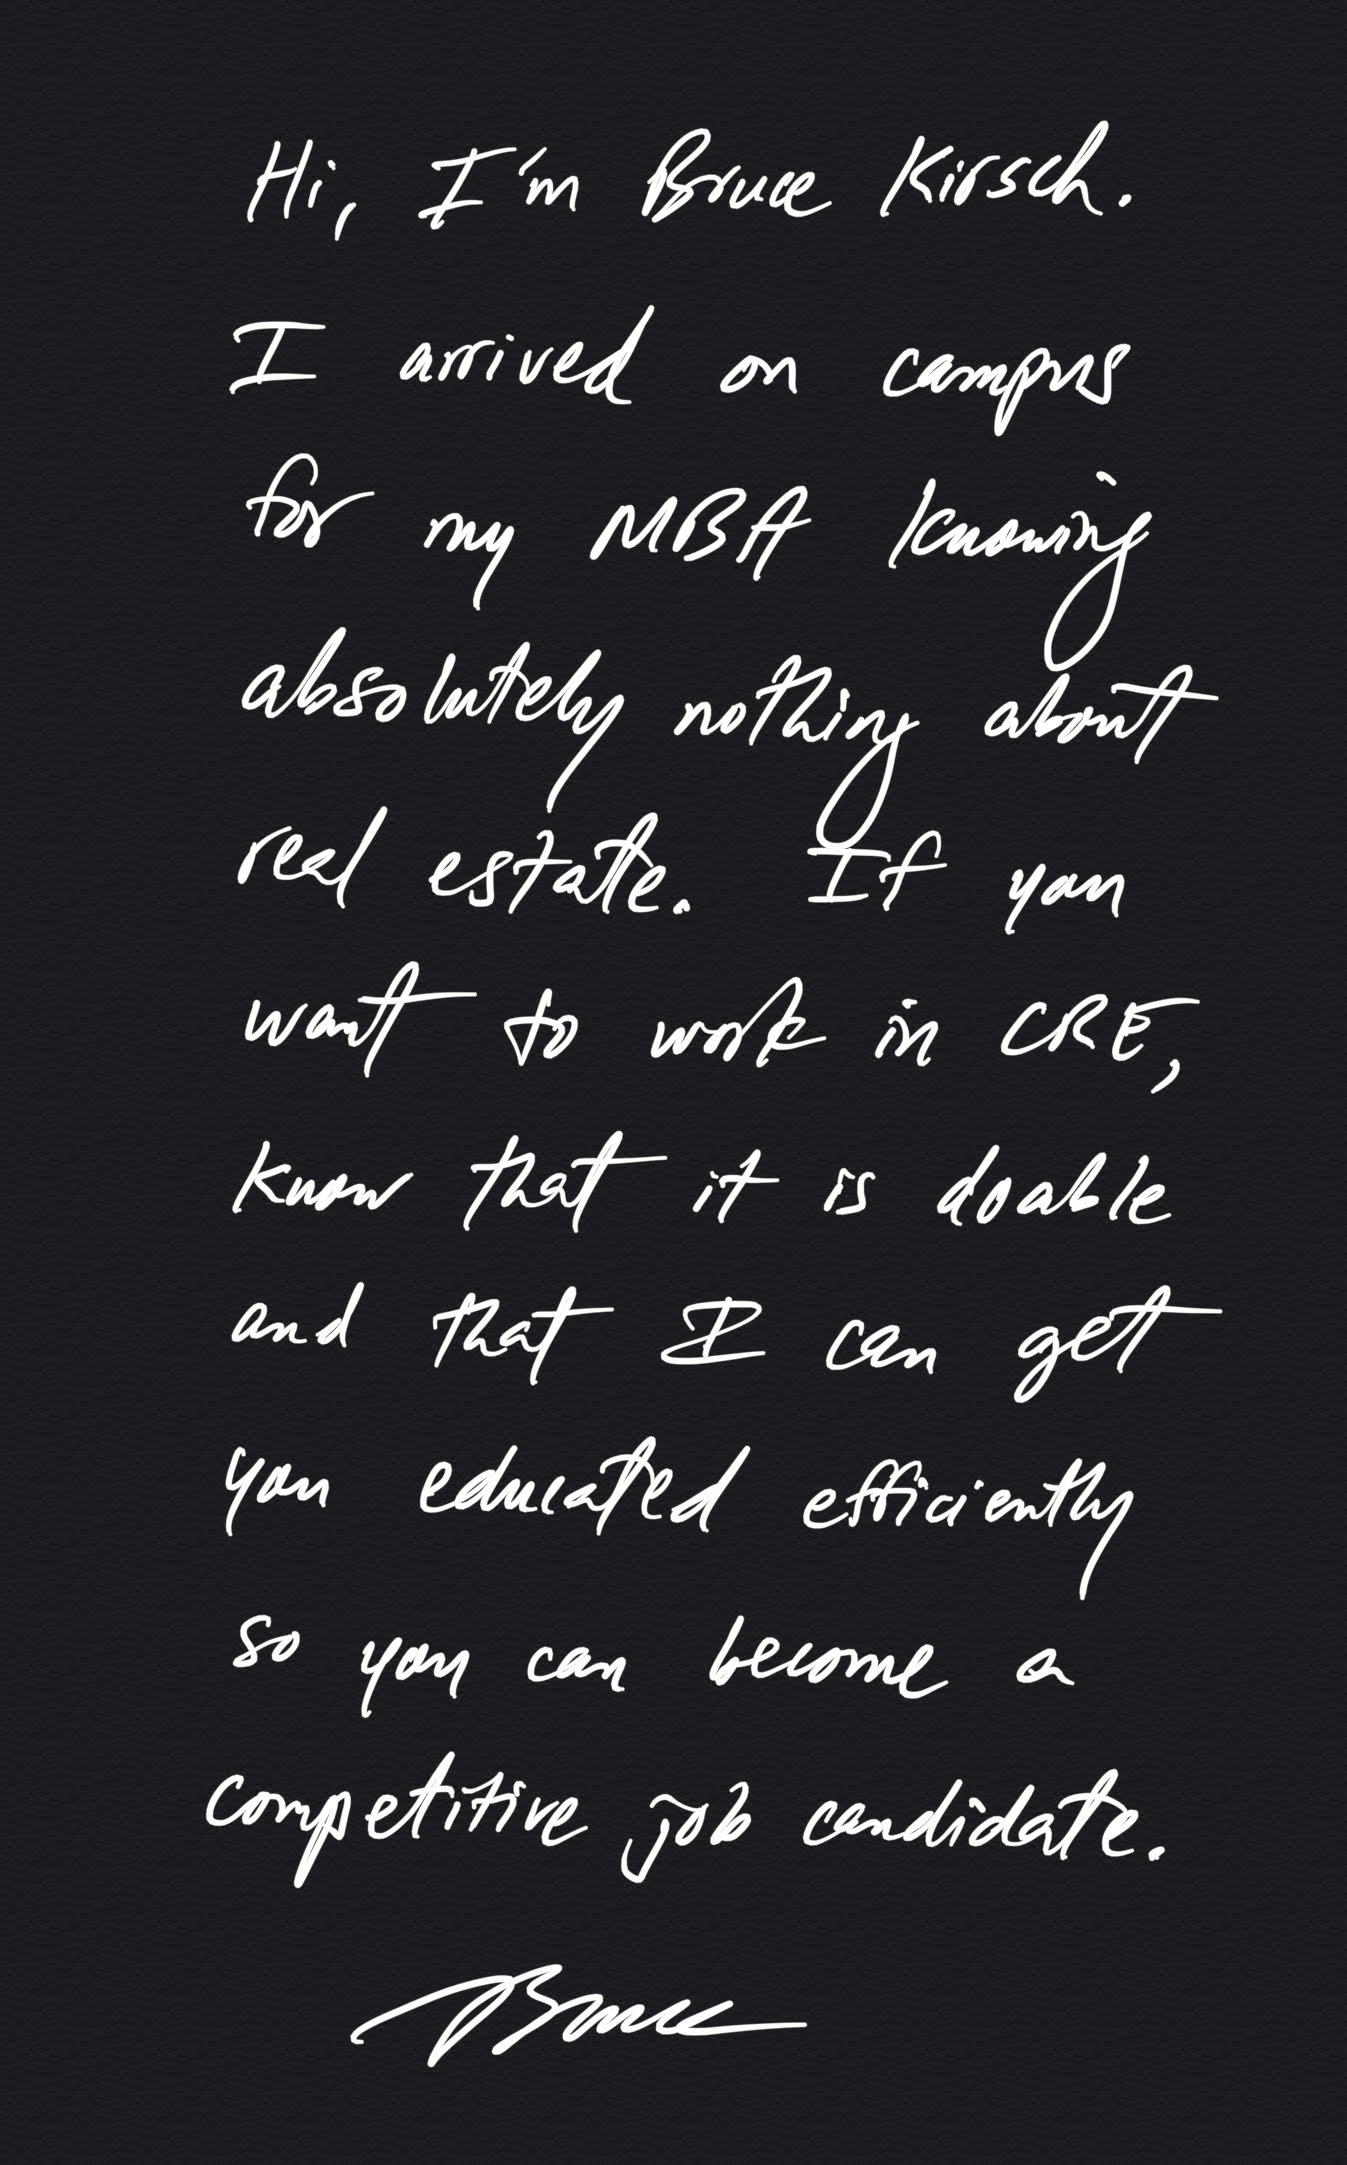 Hi, I'm Bruce Kirsch.
I arrived on campus
for my MBA knowing
absolutely nothing about
real estate. If you
want to work in CRE,
know that it is doable
and that I can get
you educated efficiently
so you can become a
competitive job candidate.
Bruce